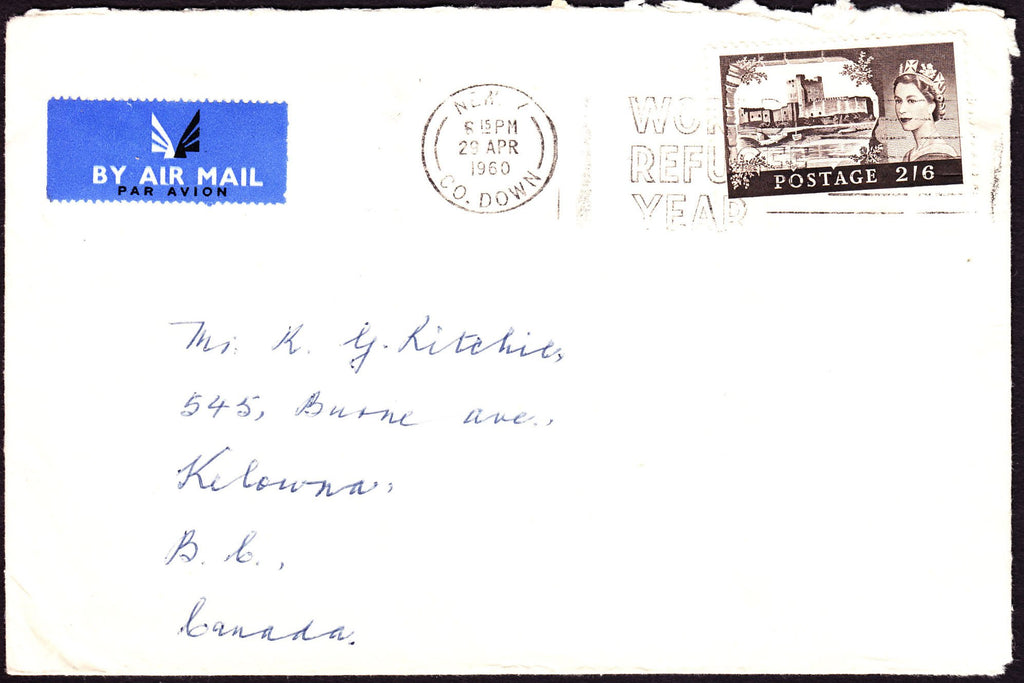 BY AIR MAIL
PAR AVION
6 15 PM
29 APR
1960
CO. DOWN
WORLD
REFUGEE
YEAR
POSTAGE 2/6
Mr. R. G. Ritchie,
545, Burne ave.,
Kelowna,
B. C.,
Canada.